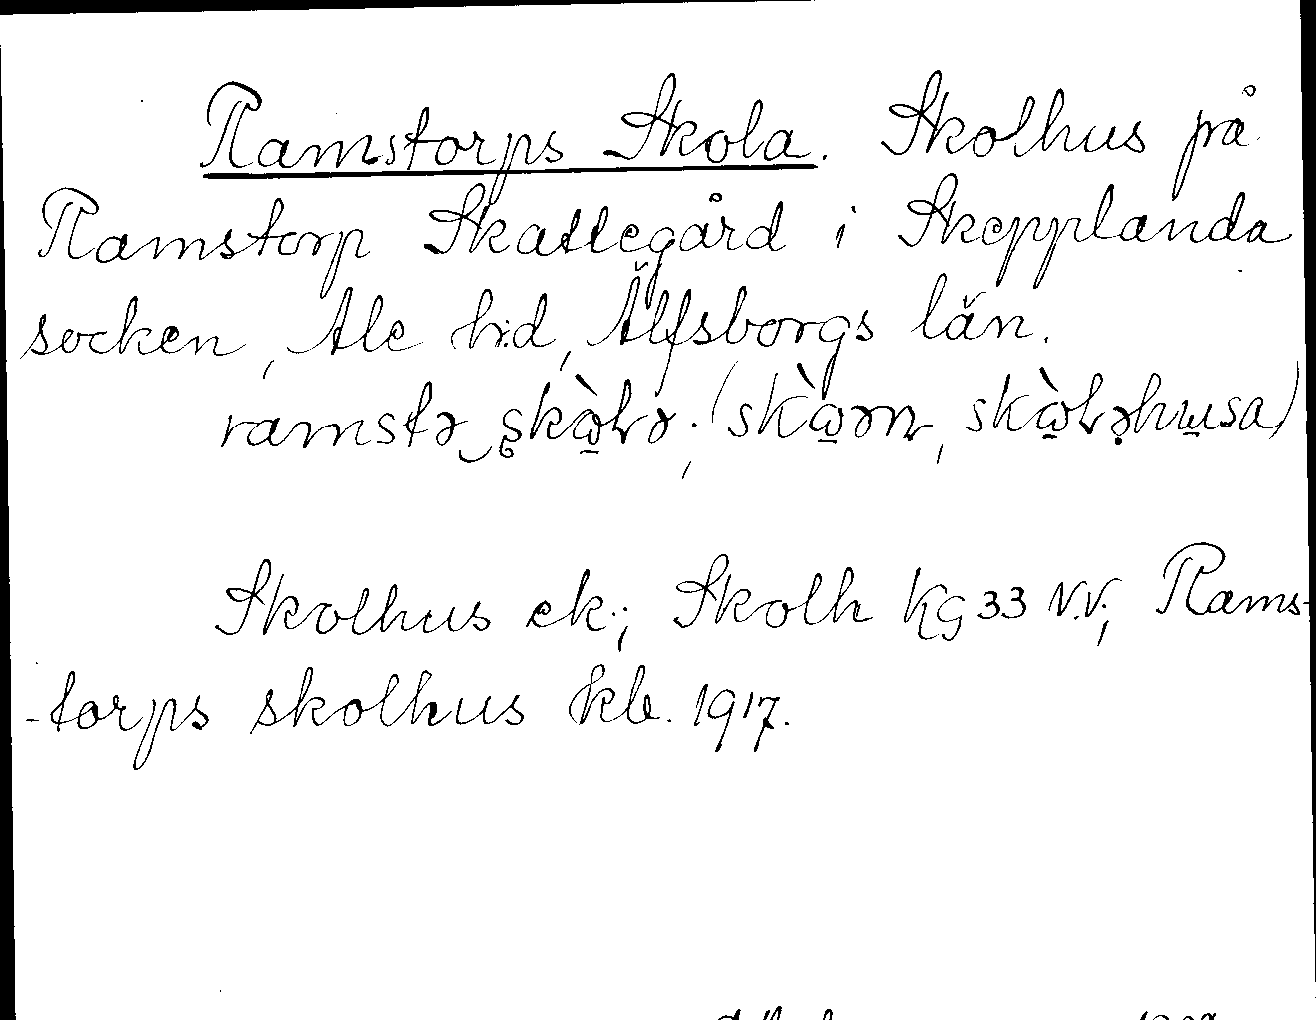 Ramstorps Skola. Skolhus på
Ramstorp Skattegård i Skepplanda
socken, Ale h:d, Älfsborgs län.
ramstɘ
Skolhus ek.; Skolh KG 33 N.V; Rams-
-torps skolhus kb. 1917.